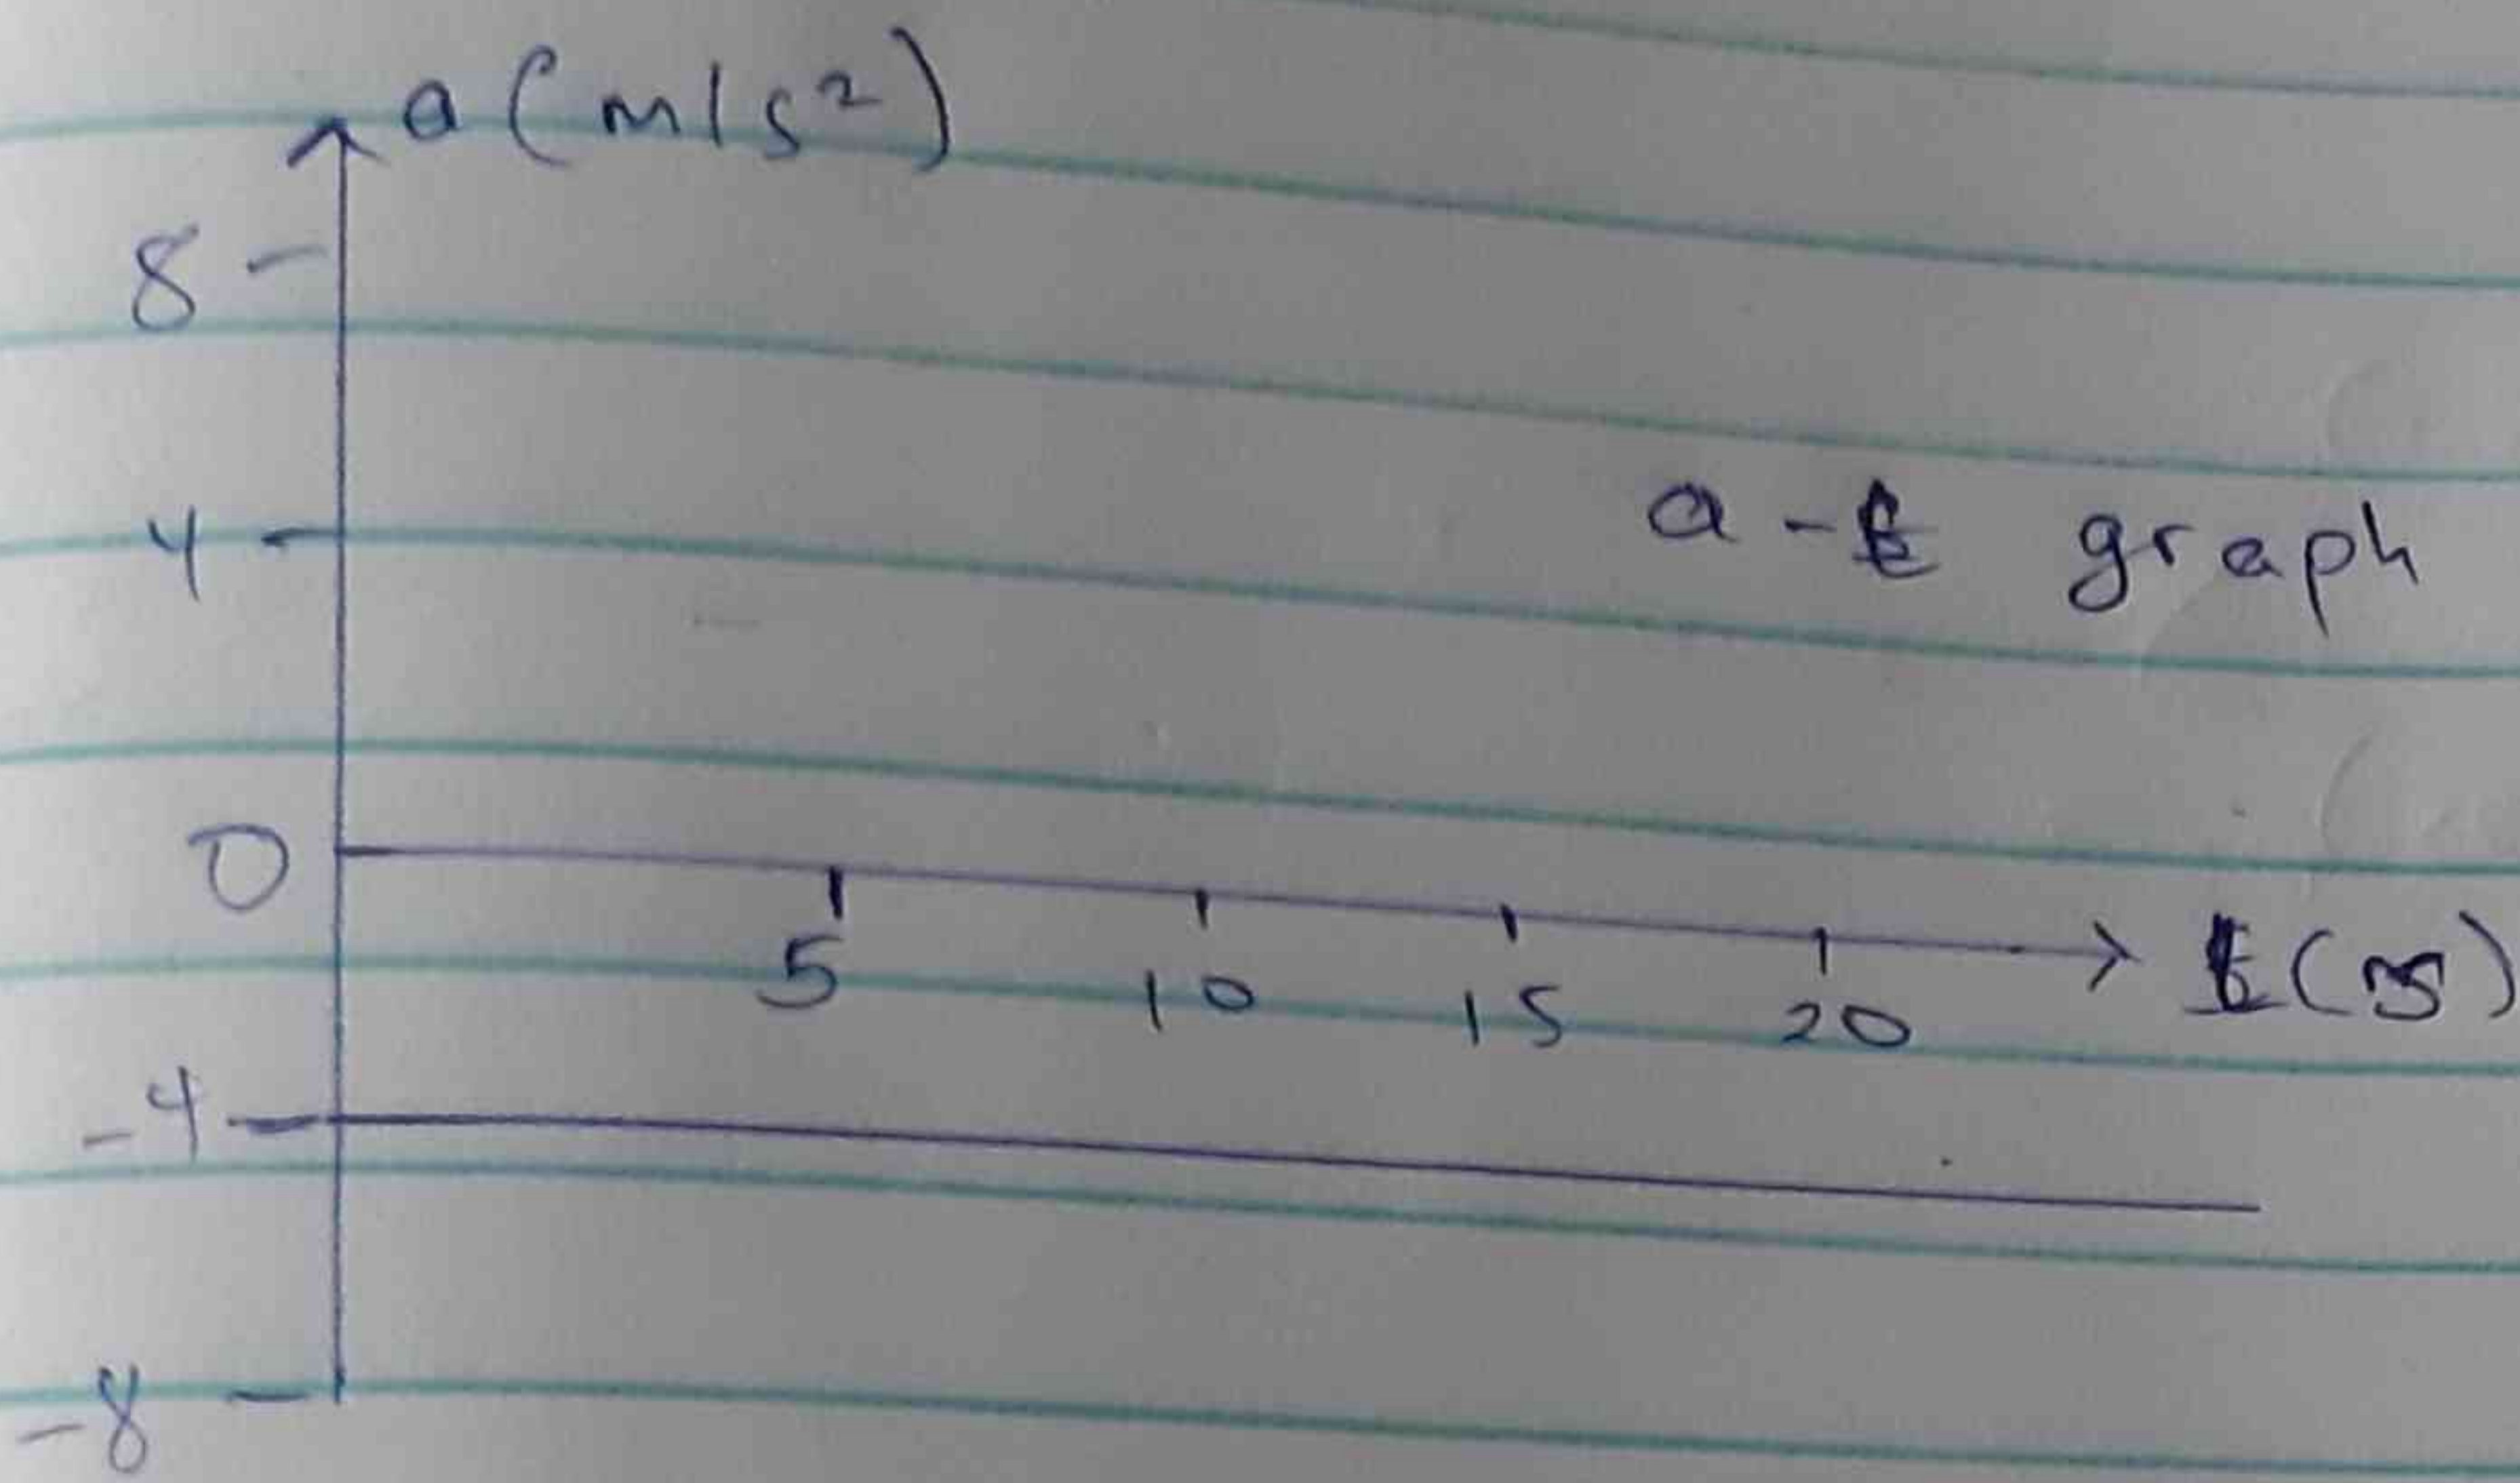 a (m/s²)
8
4
a-t graph
0
5 10 15 20 t(s)
-4
-8